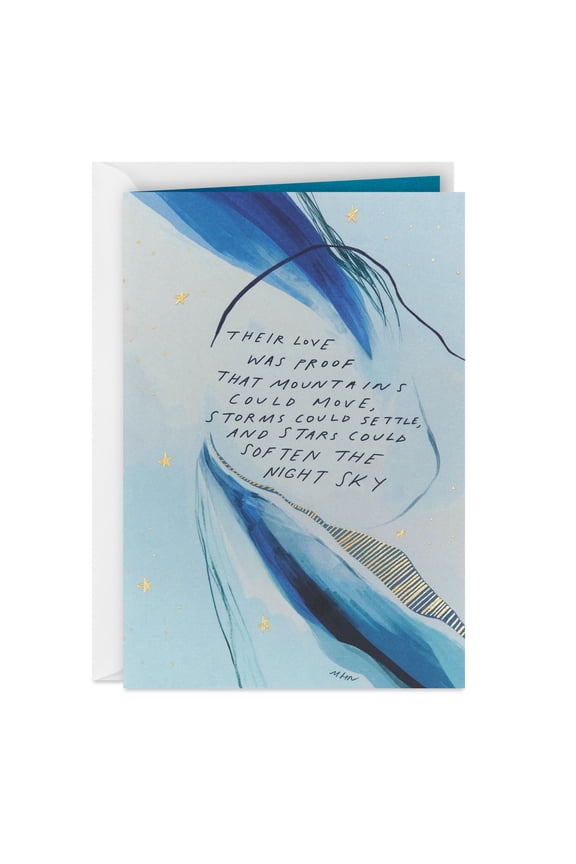 THEIR LOVE
WAS PROOF
THAT MOUNTAINS
COULD MOVE,
STORMS COULD SETTLE,
AND STARS COULD
SOFTEN THE
NIGHT SKY
MHN